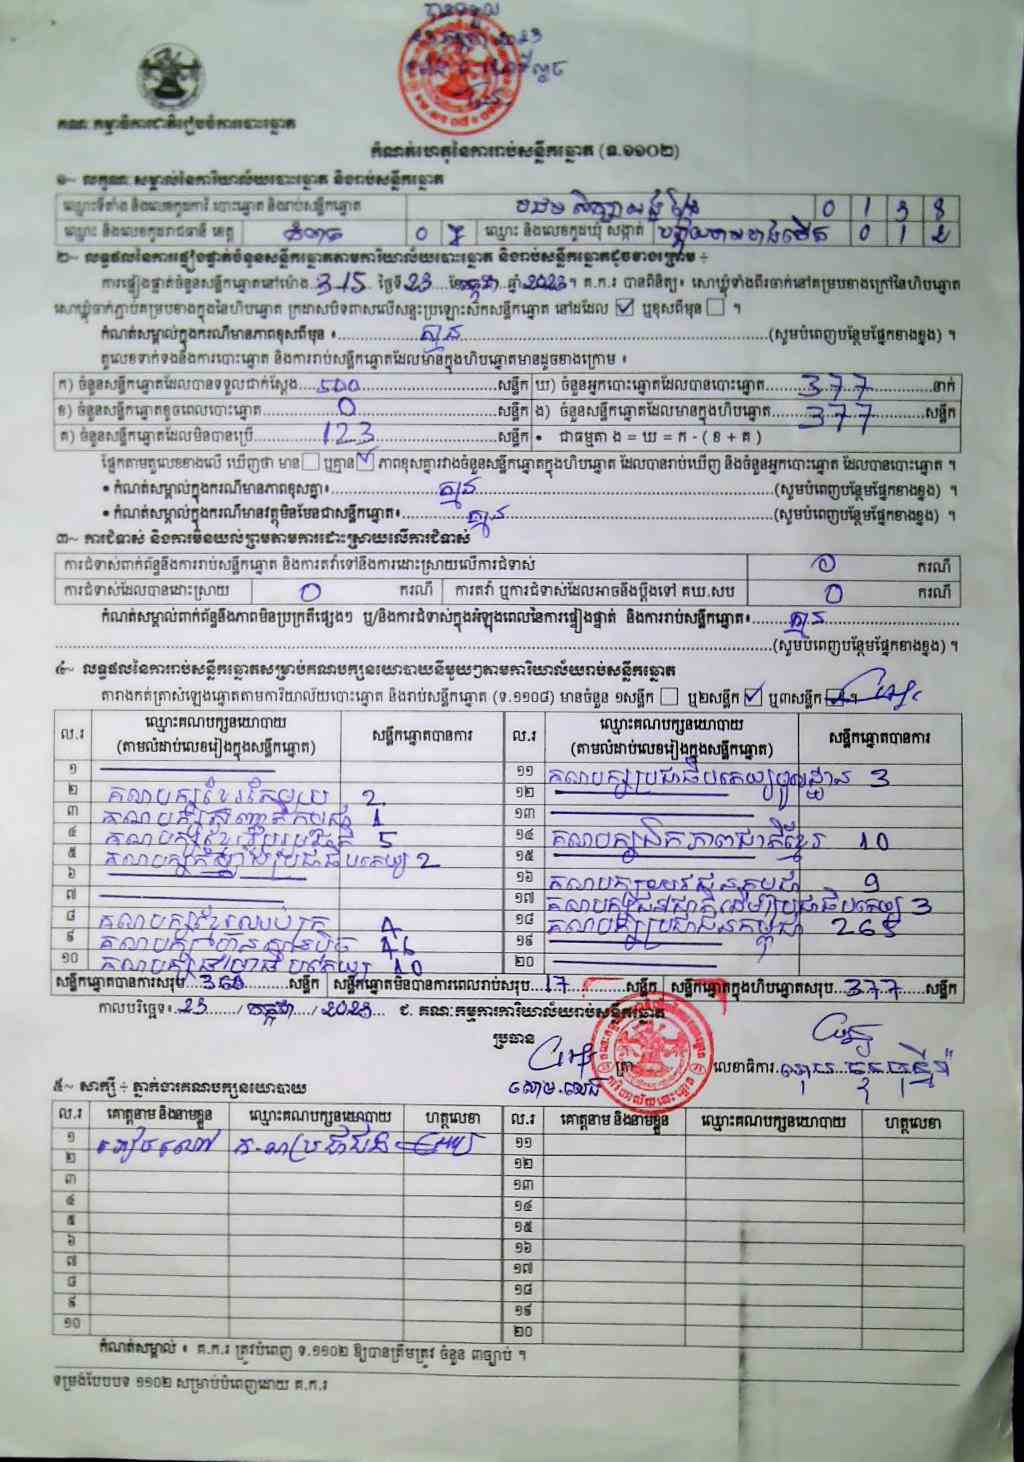 គណៈកម្មាធិការជាតិរៀបចំការបោះឆ្នោត
កំណត់ហេតុនៃការរាប់សន្លឹកឆ្នោត (ទ.១១០២)
១~ លក្ខណៈសម្គាល់នៃការិយាល័យបោះឆ្នោត និងរាប់សន្លឹកឆ្នោត
ឈ្មោះទីតាំង និងលេខកូដការិ.បោះឆ្នោត និងរាប់សន្លឹកឆ្នោត 0 1 3 8
ឈ្មោះ និងលេខកូដរាជធានី ខេត្ត កំពត 0 7 ឈ្មោះ និងលេខកូដឃុំ សង្កាត់ 0 1 2
២~ លទ្ធផលនៃការផ្ទៀងផ្ទាត់ចំនួនសន្លឹកឆ្នោតតាមការិយាល័យបោះឆ្នោត និងរាប់សន្លឹកឆ្នោតដូចខាងក្រោម ៖
ការផ្ទៀងផ្ទាត់ចំនួនសន្លឹកឆ្នោតនៅម៉ោង 3:15 ថ្ងៃទី 23 ខែ កក្កដា ឆ្នាំ 2023 ។ គ.ក.រ បានពិនិត្យ៖ សោឃ្លុំទាំងពីរចាក់នៅគម្របខាងក្រៅនៃហិបឆ្នោត
សោឃ្លុំចាក់ភ្ជាប់គម្របខាងក្នុងនៃហិបឆ្នោត ក្រដាសបិទពាសលើសន្ទះប្រឡោះស៊កសន្លឹកឆ្នោត នៅដដែល ☑ ឬខុសពីមុន ☐ ។
កំណត់សម្គាល់ក្នុងករណីមានភាពខុសពីមុន ៖ គ្មាន (សូមបំពេញបន្ថែមផ្នែកខាងខ្នង) ។
តួលេខទាក់ទងនឹងការបោះឆ្នោត និងការរាប់សន្លឹកឆ្នោតដែលមានក្នុងហិបឆ្នោតមានដូចខាងក្រោម ៖
ក) ចំនួនសន្លឹកឆ្នោតដែលបានទទួលជាក់ស្តែង 500 សន្លឹក ឃ) ចំនួនអ្នកបោះឆ្នោតដែលបានបោះឆ្នោត 377 នាក់
ខ) ចំនួនសន្លឹកឆ្នោតខូចពេលបោះឆ្នោត 0 សន្លឹក ង) ចំនួនសន្លឹកឆ្នោតដែលមានក្នុងហិបឆ្នោត 377 សន្លឹក
គ) ចំនួនសន្លឹកឆ្នោតដែលមិនបានប្រើ 123 សន្លឹក • ជាធម្មតា ង = ឃ = ក - ( ខ + គ )
ផ្អែកតាមតួលេខខាងលើ ឃើញថា មាន ☐ ឬគ្មាន ☑ ភាពខុសគ្នារវាងចំនួនសន្លឹកឆ្នោតក្នុងហិបឆ្នោត ដែលបានរាប់ឃើញ និងចំនួនអ្នកបោះឆ្នោត ដែលបានបោះឆ្នោត ។
• កំណត់សម្គាល់ក្នុងករណីមានភាពខុសគ្នា៖ គ្មាន (សូមបំពេញបន្ថែមផ្នែកខាងខ្នង) ។
• កំណត់សម្គាល់ក្នុងករណីមានវត្ថុមិនមែនជាសន្លឹកឆ្នោត៖ គ្មាន (សូមបំពេញបន្ថែមផ្នែកខាងខ្នង) ។
៣~ ការជំទាស់ និងការមិនយល់ព្រមតាមការដោះស្រាយលើការជំទាស់
ការជំទាស់ពាក់ព័ន្ធនឹងការរាប់សន្លឹកឆ្នោត និងការតវ៉ាទៅនឹងការដោះស្រាយលើការជំទាស់ 0 ករណី
ការជំទាស់ដែលបានដោះស្រាយ 0 ករណី ការតវ៉ា ឬការជំទាស់ដែលអាចនឹងប្តឹងទៅ គឃ.សប 0 ករណី
កំណត់សម្គាល់ពាក់ព័ន្ធនឹងភាពមិនប្រក្រតីផ្សេងៗ ឬ/និងការជំទាស់ក្នុងអំឡុងពេលនៃការផ្ទៀងផ្ទាត់ និងការរាប់សន្លឹកឆ្នោត៖ គ្មាន
(សូមបំពេញបន្ថែមផ្នែកខាងខ្នង) ។
៤~ លទ្ធផលនៃការរាប់សន្លឹកឆ្នោតសម្រាប់គណបក្សនយោបាយនីមួយៗតាមការិយាល័យរាប់សន្លឹកឆ្នោត
តារាងកត់ត្រាសំឡេងឆ្នោតតាមការិយាល័យបោះឆ្នោត និងរាប់សន្លឹកឆ្នោត (ទ.១១០៨) មានចំនួន ១សន្លឹក ☐ ឬ២សន្លឹក ☑ ឬ៣សន្លឹក ។
ល.រ ឈ្មោះគណបក្សនយោបាយ (តាមលំដាប់លេខរៀងក្នុងសន្លឹកឆ្នោត) សន្លឹកឆ្នោតបានការ ល.រ ឈ្មោះគណបក្សនយោបាយ (តាមលំដាប់លេខរៀងក្នុងសន្លឹកឆ្នោត) សន្លឹកឆ្នោតបានការ
១ ១១ គណបក្សប្រជាធិបតេយ្យមូលដ្ឋាន 3
២ គណបក្ស 2 ១២
៣ គណបក្ស 1 ១៣
៤ គណបក្សខ្មែរ 5 ១៤ គណបក្សឯកភាពជាតិខ្មែរ 10
៥ គណបក្សកម្លាំងប្រជាធិបតេយ្យ 2 ១៥
៦ ១៦ គណបក្សយុវជនកម្ពុជា 9
៧ ១៧ គណបក្ស 3
៨ គណបក្សខ្មែរ ១៨ គណបក្សប្រជាជនកម្ពុជា 268
៩ ១៩
១០ 10 ២០
សន្លឹកឆ្នោតបានការសរុប 360 សន្លឹក សន្លឹកឆ្នោតមិនបានការពេលរាប់សរុប 17 សន្លឹក សន្លឹកឆ្នោតក្នុងហិបឆ្នោតសរុប 377 សន្លឹក
កាលបរិច្ឆេទ៖ 23 / កក្កដា / 2023 ជ. គណៈកម្មការការិយាល័យរាប់សន្លឹកឆ្នោត
ប្រធាន
ត្រា លេខាធិការ
៥~ សាក្សី ÷ ភ្នាក់ងារគណបក្សនយោបាយ
ល.រ គោត្តនាម និងនាមខ្លួន ឈ្មោះគណបក្សនយោបាយ ហត្ថលេខា ល.រ គោត្តនាម និងនាមខ្លួន ឈ្មោះគណបក្សនយោបាយ ហត្ថលេខា
១ ១១
២ ១២
៣ ១៣
៤ ១៤
៥ ១៥
៦ ១៦
៧ ១៧
៨ ១៨
៩ ១៩
១០ ២០
កំណត់សម្គាល់ ៖ គ.ក.រ ត្រូវបំពេញ ទ.១១០២ ឱ្យបានត្រឹមត្រូវ ចំនួន ៣ច្បាប់ ។
ទម្រង់បែបបទ ១១០២ សម្រាប់បំពេញដោយ គ.ក.រ